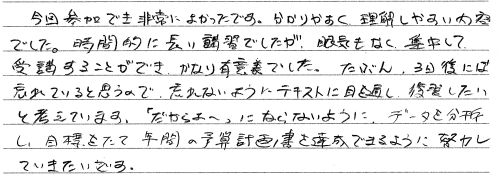 今回参加でき非常によかったです。わかりやすく理解しやすい内容
でした。時間的に長い講習でしたが、眠気もなく、集中して
受講することができ、かなり有意義でした。たぶん、3日後には
忘れていると思うので、忘れないようにテキストに目を通し、復習したい
と考えています。「だからよ〜」にならないように、データを分析
し、目標をたて年間の予算計画書を達成できるように努力し
ていきたいです。